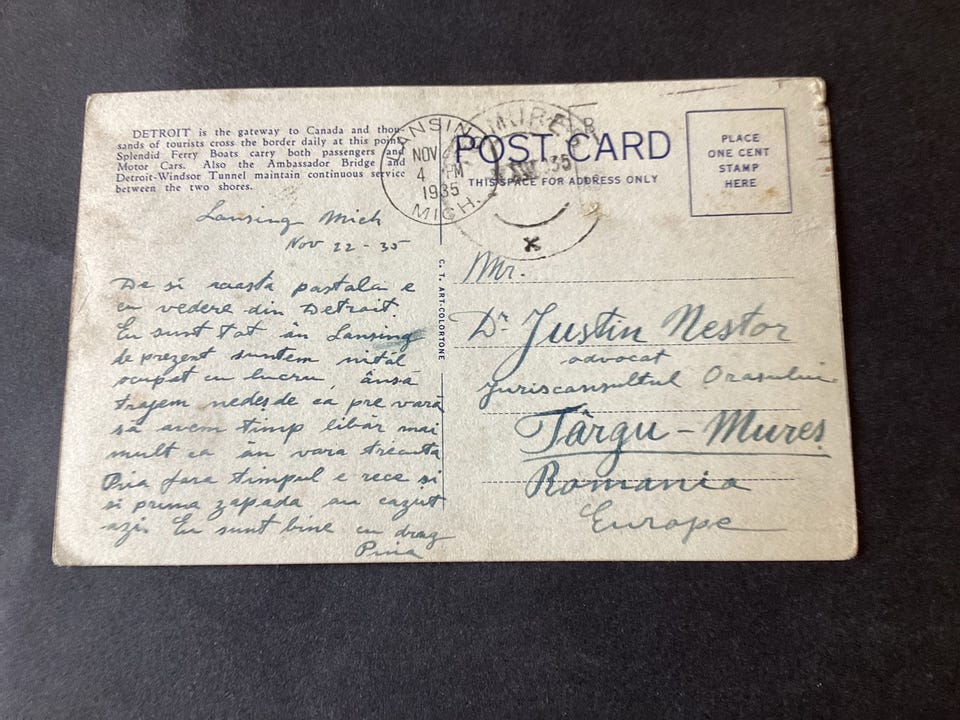 DETROIT is the gateway to Canada and thou-
sands of tourists cross the border daily at this point.
Splendid Ferry Boats carry both passengers and
Motor Cars. Also the Ambassador Bridge and
Detroit-Windsor Tunnel maintain continuous service
between the two shores.
LANSING
NOV
4 PM
1935
MICH.
MUREȘ
35
POST CARD
THIS SPACE FOR ADDRESS ONLY
PLACE
ONE CENT
STAMP
HERE
Lansing Mich
Nov 22 - 35
De si pastala e
cu vedere din Detroit.
Eu sunt tot ân Lansing
de prezent suntem
ocupat cu lucru, ânsă
tragem nedesde ca pre vara
să avem timp libăr mai
mult ca ân vara trecuta
Pria fara timpul e rece si
si prima zapada au cazut
azi. Eu sunt bine cu drag
C. T. ART-COLORTONE
Mr.
Dr Justin Nestor
advocat
Jurisconsultul Orasului
Târgu - Mureș
Romania
Europe